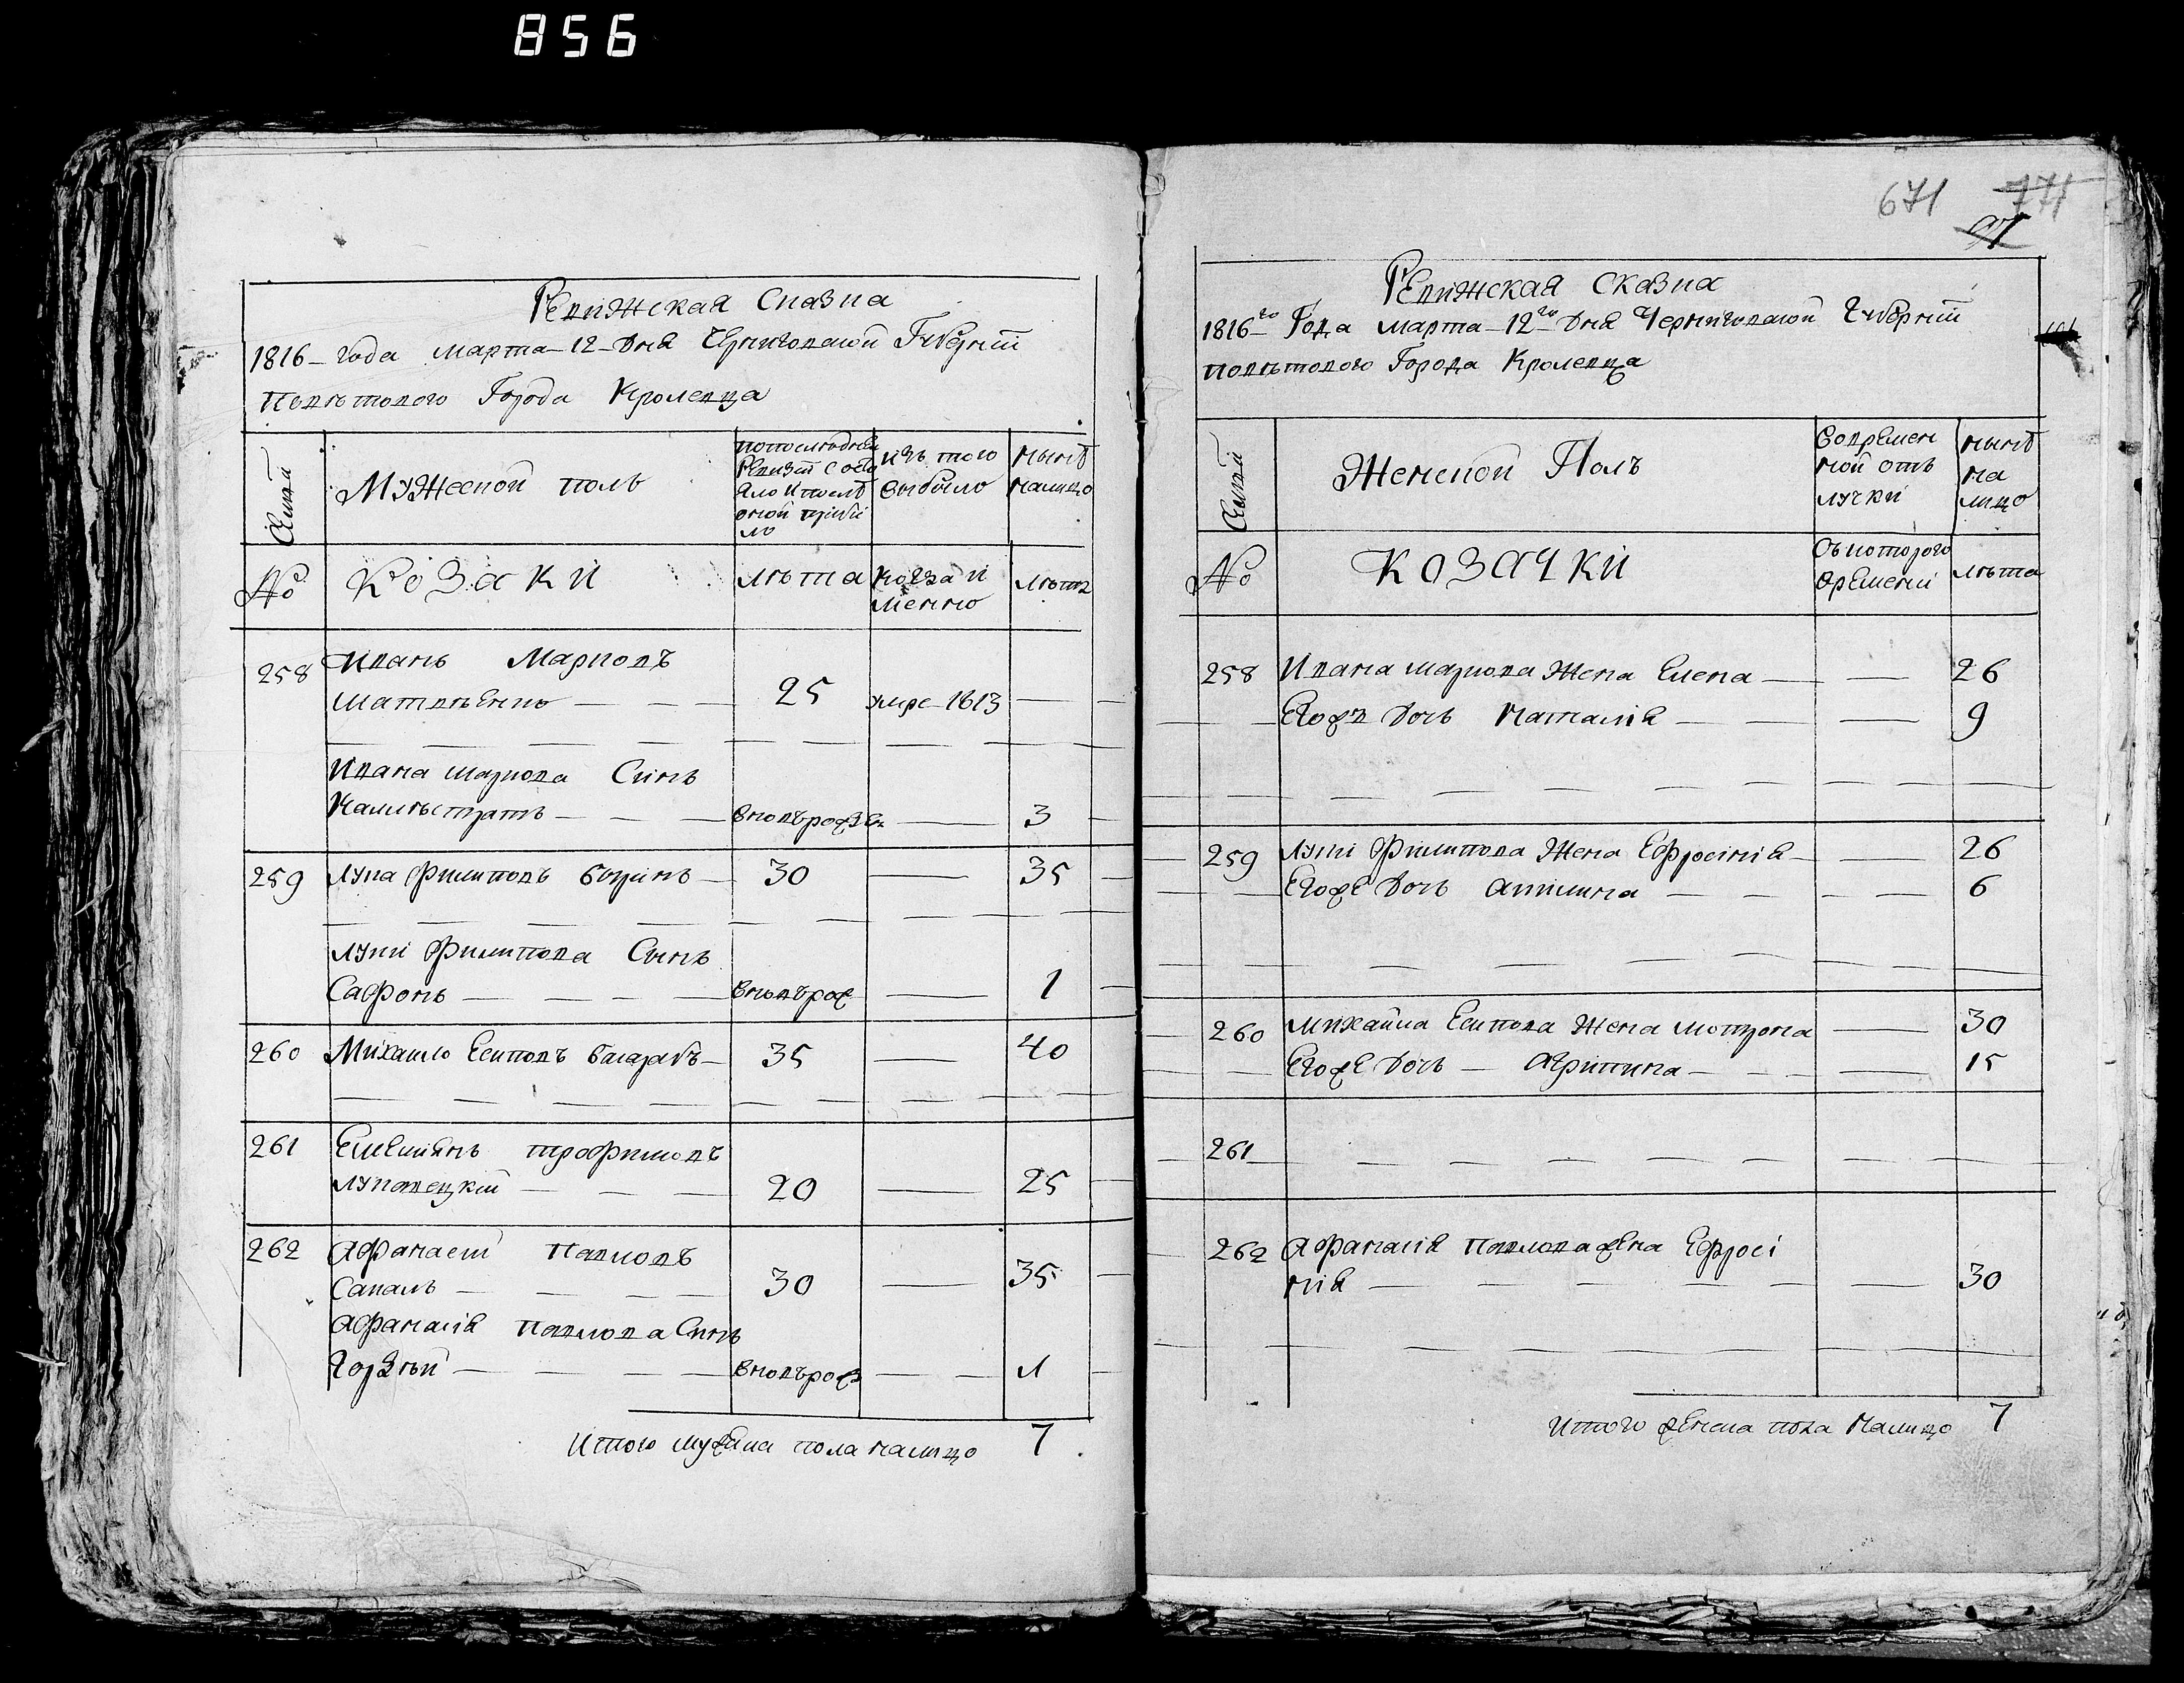 856
Ревижская Сказка
1816 года марта 12 Дня Черниговской Губернїи
Поветового Города Кролевца
Семьи
Мужеской полъ
попоследней Ревизїи состо яло и после оной прибы ло
изъ того выбыло
ныне налицо
№
Козаки
лета
когда и менно
лета
258 Иванъ Марковъ
Матвеенко 25 умре 1813
Ивана Маркова Синъ
Калистратъ вновърожден 3
259 Лука Филиповъ 30 35
Луки Филипова Сынъ
Сафонъ вновърож 1
260 Михайло Есиповъ 35 40
261 Емелиянъ трофимовъ
20 25
262 Афанасей Павловъ
30 35
Афанасия Павлова Синъ
Гордей вновърож 1
Итого мужеска пола налицо 7
671 771
97
Ревижская Сказка
1816го Года марта 12го Дня Черниговской Губернїи
поветового Города Кролевца
Семьи
Женской Полъ
Вовремен ной отъ лучки
ныне на лицо
№
Козачки
Съ которого времени
лета
258 Ивана маркова Жена Елена 26
Егож дочь Наталия 9
259 Луки Филипова Жена Ефросиния 26
Егоже дочь Акилина 6
260 Михайла Есипова Жена Мотрона 30
Егоже дочь Агрипина 15
261
262 Афанасия Павлова жена Ефроси
ния 30
Итого женска пола Налицо 7